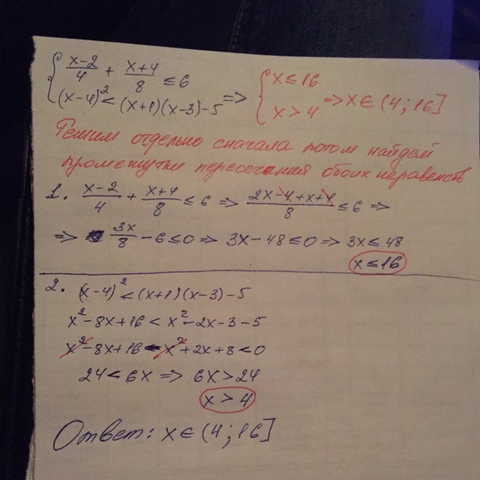 { (x-2)/4 + (x+4)/8 ≤ 6
(x-4)² < (x+1)(x-3)-5 => { x ≤ 16
x > 4 => x ∈ (4; 16]
Решим отдельно сначала потом найдем
промежутки пересечения обоих неравенств
1. (x-2)/4 + (x+4)/8 ≤ 6 => (2x-4+x+4)/8 ≤ 6 =>
=> 3x/8 - 6 ≤ 0 => 3x-48 ≤ 0 => 3x ≤ 48
x ≤ 16
2. (x-4)² < (x+1)(x-3)-5
x²-8x+16 < x²-2x-3-5
x²-8x+16-x²+2x+8 < 0
24 < 6x => 6x > 24
x > 4
Ответ: x ∈ (4; 16]